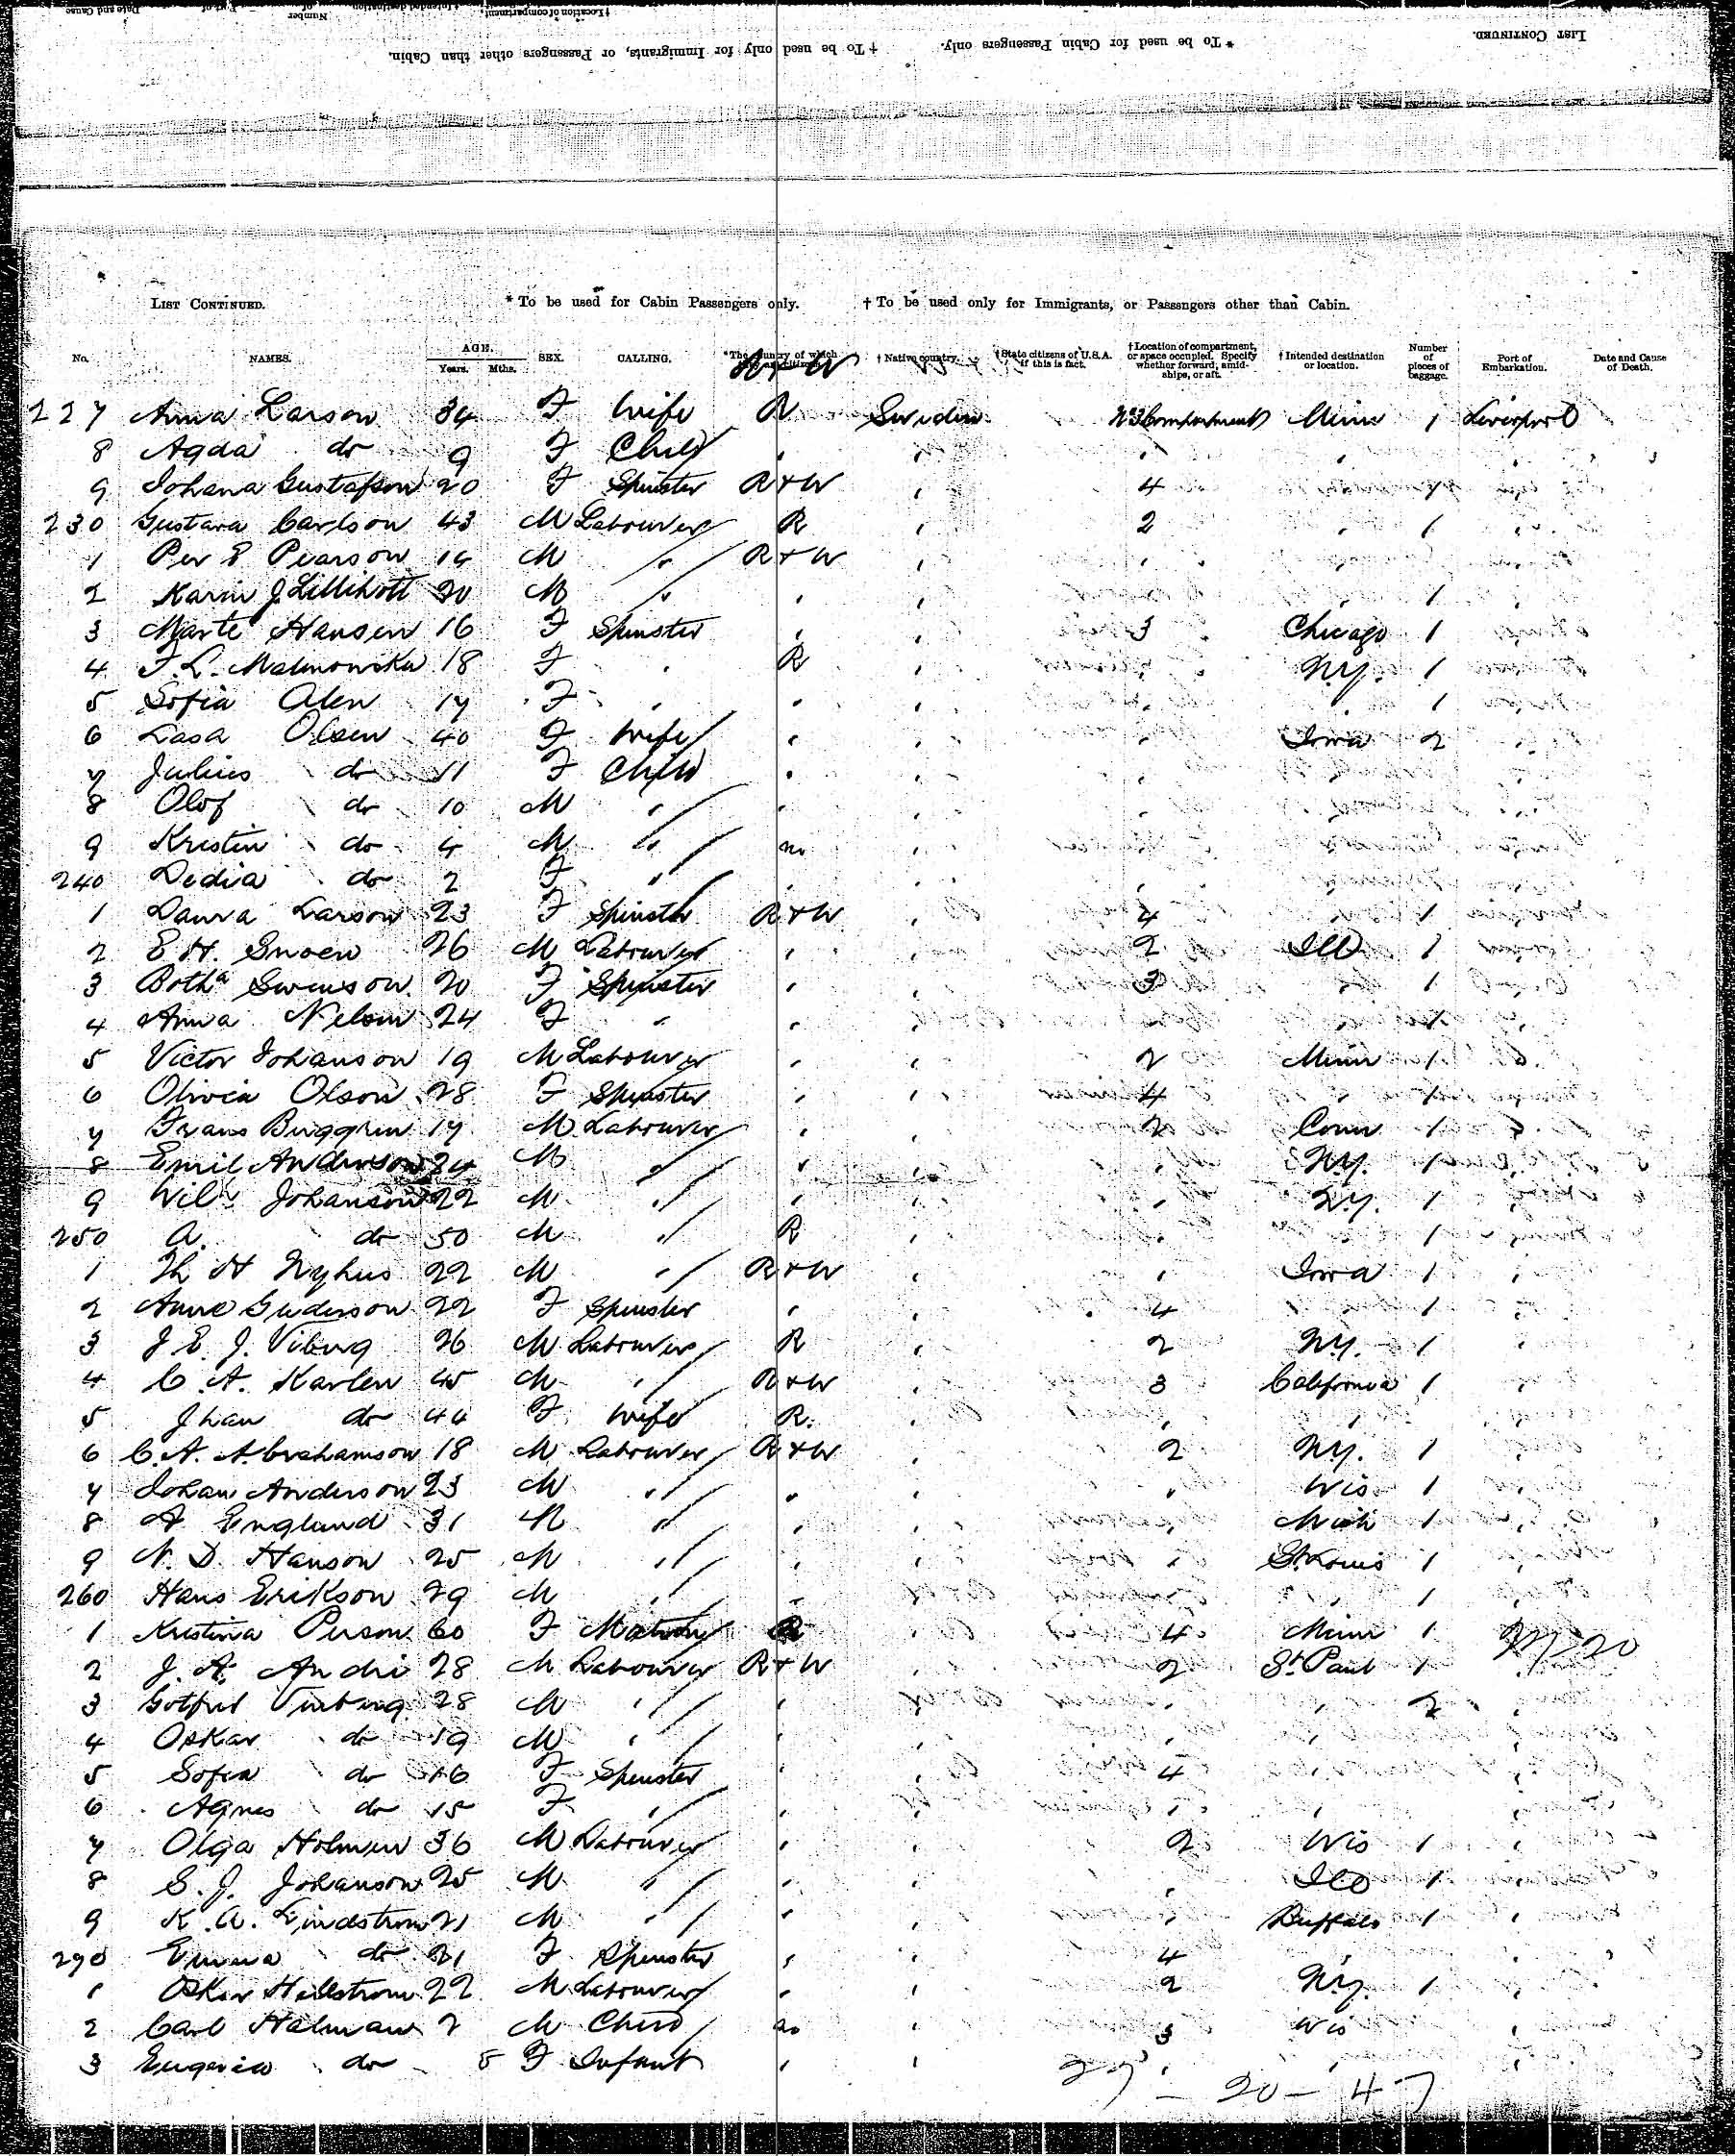 LIST CONTINUED. * To be used for Cabin Passengers only. † To be used only for Immigrants, or Passengers other than Cabin.
†Location of compartment, †Intended destination Number of Port of Date and Cause
LIST CONTINUED. * To be used for Cabin Passengers only. † To be used only for Immigrants, or Passengers other than Cabin.
No. NAMES. AGE. Years. Mths. SEX. CALLING. *The country of which † Native country. †State citizens of U.S.A. if this is fact. †Location of compartment, or space occupied. Specify whether forward, amidships, or aft. †Intended destination or location. Number of pieces of baggage. Port of Embarkation. Date and Cause of Death.
R+W
227 Anna Larson 34 F Wife R Sweden No 3 Compartment Minn 1 Liverpool
8 Agda do 9 F Child " " " " "
9 Johana Gustafson 20 F Spinster R+W " 4
230 Gustava Carlson 43 M Labourer R " 2 " 1 "
1 Per E Pearson 14 M " R+W " " " "
2 Karin J Lillihott 20 M " " " " 1 "
3 Marte Hansen 16 F Spinster " " 3 Chicago 1 "
4 F. L. Malmowska 18 F " R " " N.Y. 1 "
5 Sofia Olen 17 F " " " " " 1 "
6 Lasa Olsen 40 F Wife " " " Iowa 2 "
7 Julius do 11 F Child " " " " "
8 Olof do 10 M " " " " " "
9 Kristin do 4 M " no " " " "
240 Dedia do 2 F " " " " " "
1 Laura Larson 23 F Spinster R+W " 4 " 1 "
2 E H. Snoen 26 M Labourer " " 2 Ill 1 "
3 Botha Swenson 20 F Spinster " " 3 " 1 "
4 Anna Nelson 24 F " " " " " 1 "
5 Victor Johanson 19 M Labourer " " 2 Minn 1 "
6 Olivia Olson 28 F Spinster " " 4 " 1 "
7 Frans Buggren 17 M Labourer " " 2 Conn 1 "
8 Emil Anderson 24 M " " " " N.Y. 1 "
9 Wilh Johanson 22 M " " " " N.Y. 1 "
250 A. do 50 M " R " " " 1 "
1 Th H Nyhus 22 M " R+W " " Iowa 1 "
2 Anne Guderson 22 F Spinster " " 4 " 1 "
3 J. E. J. Viberg 26 M Labourer R " 2 N.Y. 1 "
4 C. A. Karlen 45 M " R+W " 3 California 1 "
5 Jhan do 44 F Wife R. " " " "
6 C. A. Abrahamson 18 M Labourer R+W " 2 N.Y. 1 "
7 Johan Anderson 23 M " " " " Wis 1 "
8 A England 31 M " " " " Mich 1 "
9 N. D. Hanson 25 M " " " " St. Louis 1 "
260 Hans Erikson 29 M " " " " " 1 "
1 Kristina Person 60 F Matron R " 4 Minn 1
2 J. A. Andri 28 M Labourer R+W " 2 St Paul 1 "
3 Gotfrid 28 M " " " " " 2 "
4 Oskar do 19 M " " " " " "
5 Sofia do 16 F Spinster " " 4 " "
6 Agnes do 15 F " " " " " "
7 Olga Holmen 36 M Labourer " " 2 Wis 1 "
8 S. J. Johanson 25 M " " " " Ill 1 "
9 K. A. Lindstrom 21 M " " " " Buffalo 1 "
270 Emma do 21 F Spinster " " 4 " "
1 Oskar Hellstrom 22 M Labourer " " 2 N.Y. 1 "
2 Carl Halman 2 M Child no " 3 Wis "
3 Eugenia do 8 F Infant " " " " "
27 - 20 - 47